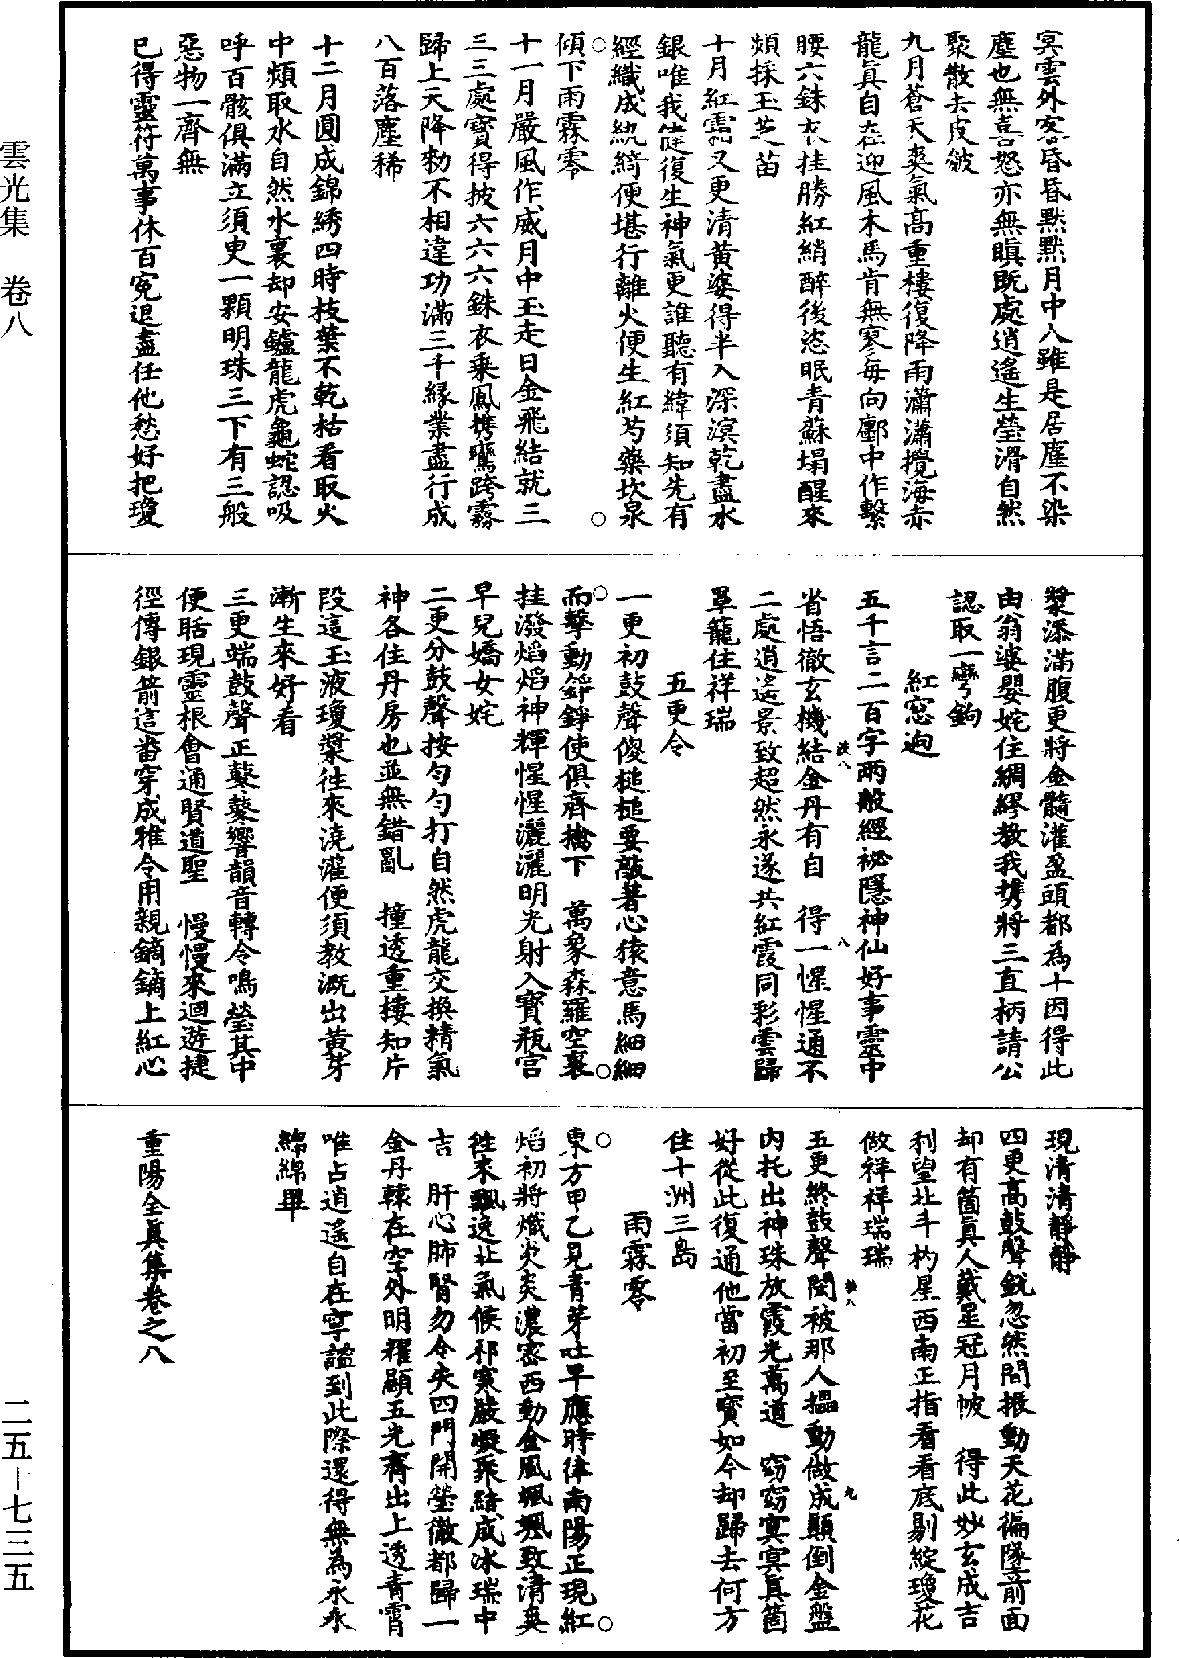 冥雲外客昏昏黙黙月中人雖是居塵不染
塵也無喜怒亦無瞋既處逍遙生瑩滑自然
聚散去皮皴
九月蒼天爽氣高重樓復降雨瀟瀟攪海赤
龍真自在迎風木馬肯無寥每向酆中作繫
腰六銖衣挂勝紅綃醉後恣眠青蘇塌醒來
頻採玉芝苗
十月紅霜又更清黃婆得半入深溟乾盡水
銀唯我健復生神氣更誰聽有緯須知先有
經織成紈綺便堪行離火便生紅芍藥坎泉
傾下雨霖零
十一月嚴風作威月中玉走日金飛結就三
三三處寶得披六六六銖衣乘鳳携鸞跨霧
歸上天降勑不相違功滿三千緣業盡行成
八百落塵稀
十二月圓成錦綉四時枝葉不乾枯看取火
中頻取水自然水裏却安鑪龍虎龜蛇認吸
呼百骸俱滿立須臾一顆明珠三下有三般
惡物一齊無
已得靈符萬事休百冤退盡任他愁好把瓊
漿添滿腹更將金髓灌盈頭都為十因得此
由翁婆嬰姹住綢繆教我携將三直柄請公
認取一彎鉤
紅窓迥
五千言二百字兩般經祕隱神仙好事靈中
省悟徹玄機結金丹有自　得一惺惺通不
二處逍遙景致超然永遂共紅霞同彩雲歸
草籠住祥瑞
五更令
一更初鼓聲傻槌槌要敲著心猿意馬細細
而擊動錚錚使俱齊擒下　萬象森羅空裏
挂潑焰焰神輝惺惺灑灑明光射入寶瓶宮
早兒嬌女姹
二更分鼓聲按勻勻打自然虎龍交換精氣
神各住丹房也並無錯亂　撞透重樓知片
段這玉液瓊漿往來澆灌便須教溉出黃芽
漸生來好看
三更端鼓聲正鼕鼕響韻音轉令鳴瑩其中
便聒現靈根會通賢道聖　慢慢來迴遊捷
徑傳銀箭這畨穿成雅令用親鏑鏑上紅心
現清清靜靜
四更高鼓聲銳忽然間振動天花徧墜前面
却有箇真人戴星冠月帔　得此妙玄成吉
利望北斗杓星西南正指看看底剔綻瓊花
做祥祥瑞瑞
五更終鼓聲閙被那人搵動做成顛倒金盤
内托出神珠放霞光萬道　窈窈冥冥真箇
好從此復通他當初至寶如今却歸去何方
住十洲三島
雨霖零
東方甲乙見青芽吐早應時律南陽正現紅
焰初將熾炎炎濃密西動金風颯颯致清爽
往來飄逸北氣候祁寒嚴凝聚結成冰瑞中
吉　肝心肺腎勿令失四門開瑩徹都歸一
金丹輥在空外明耀顯五光齊出上透青霄
唯占逍遙自在寧謐到此際還得無為永永
綿綿畢
重陽全真集卷之八
雲光集　卷八
二五－七三五